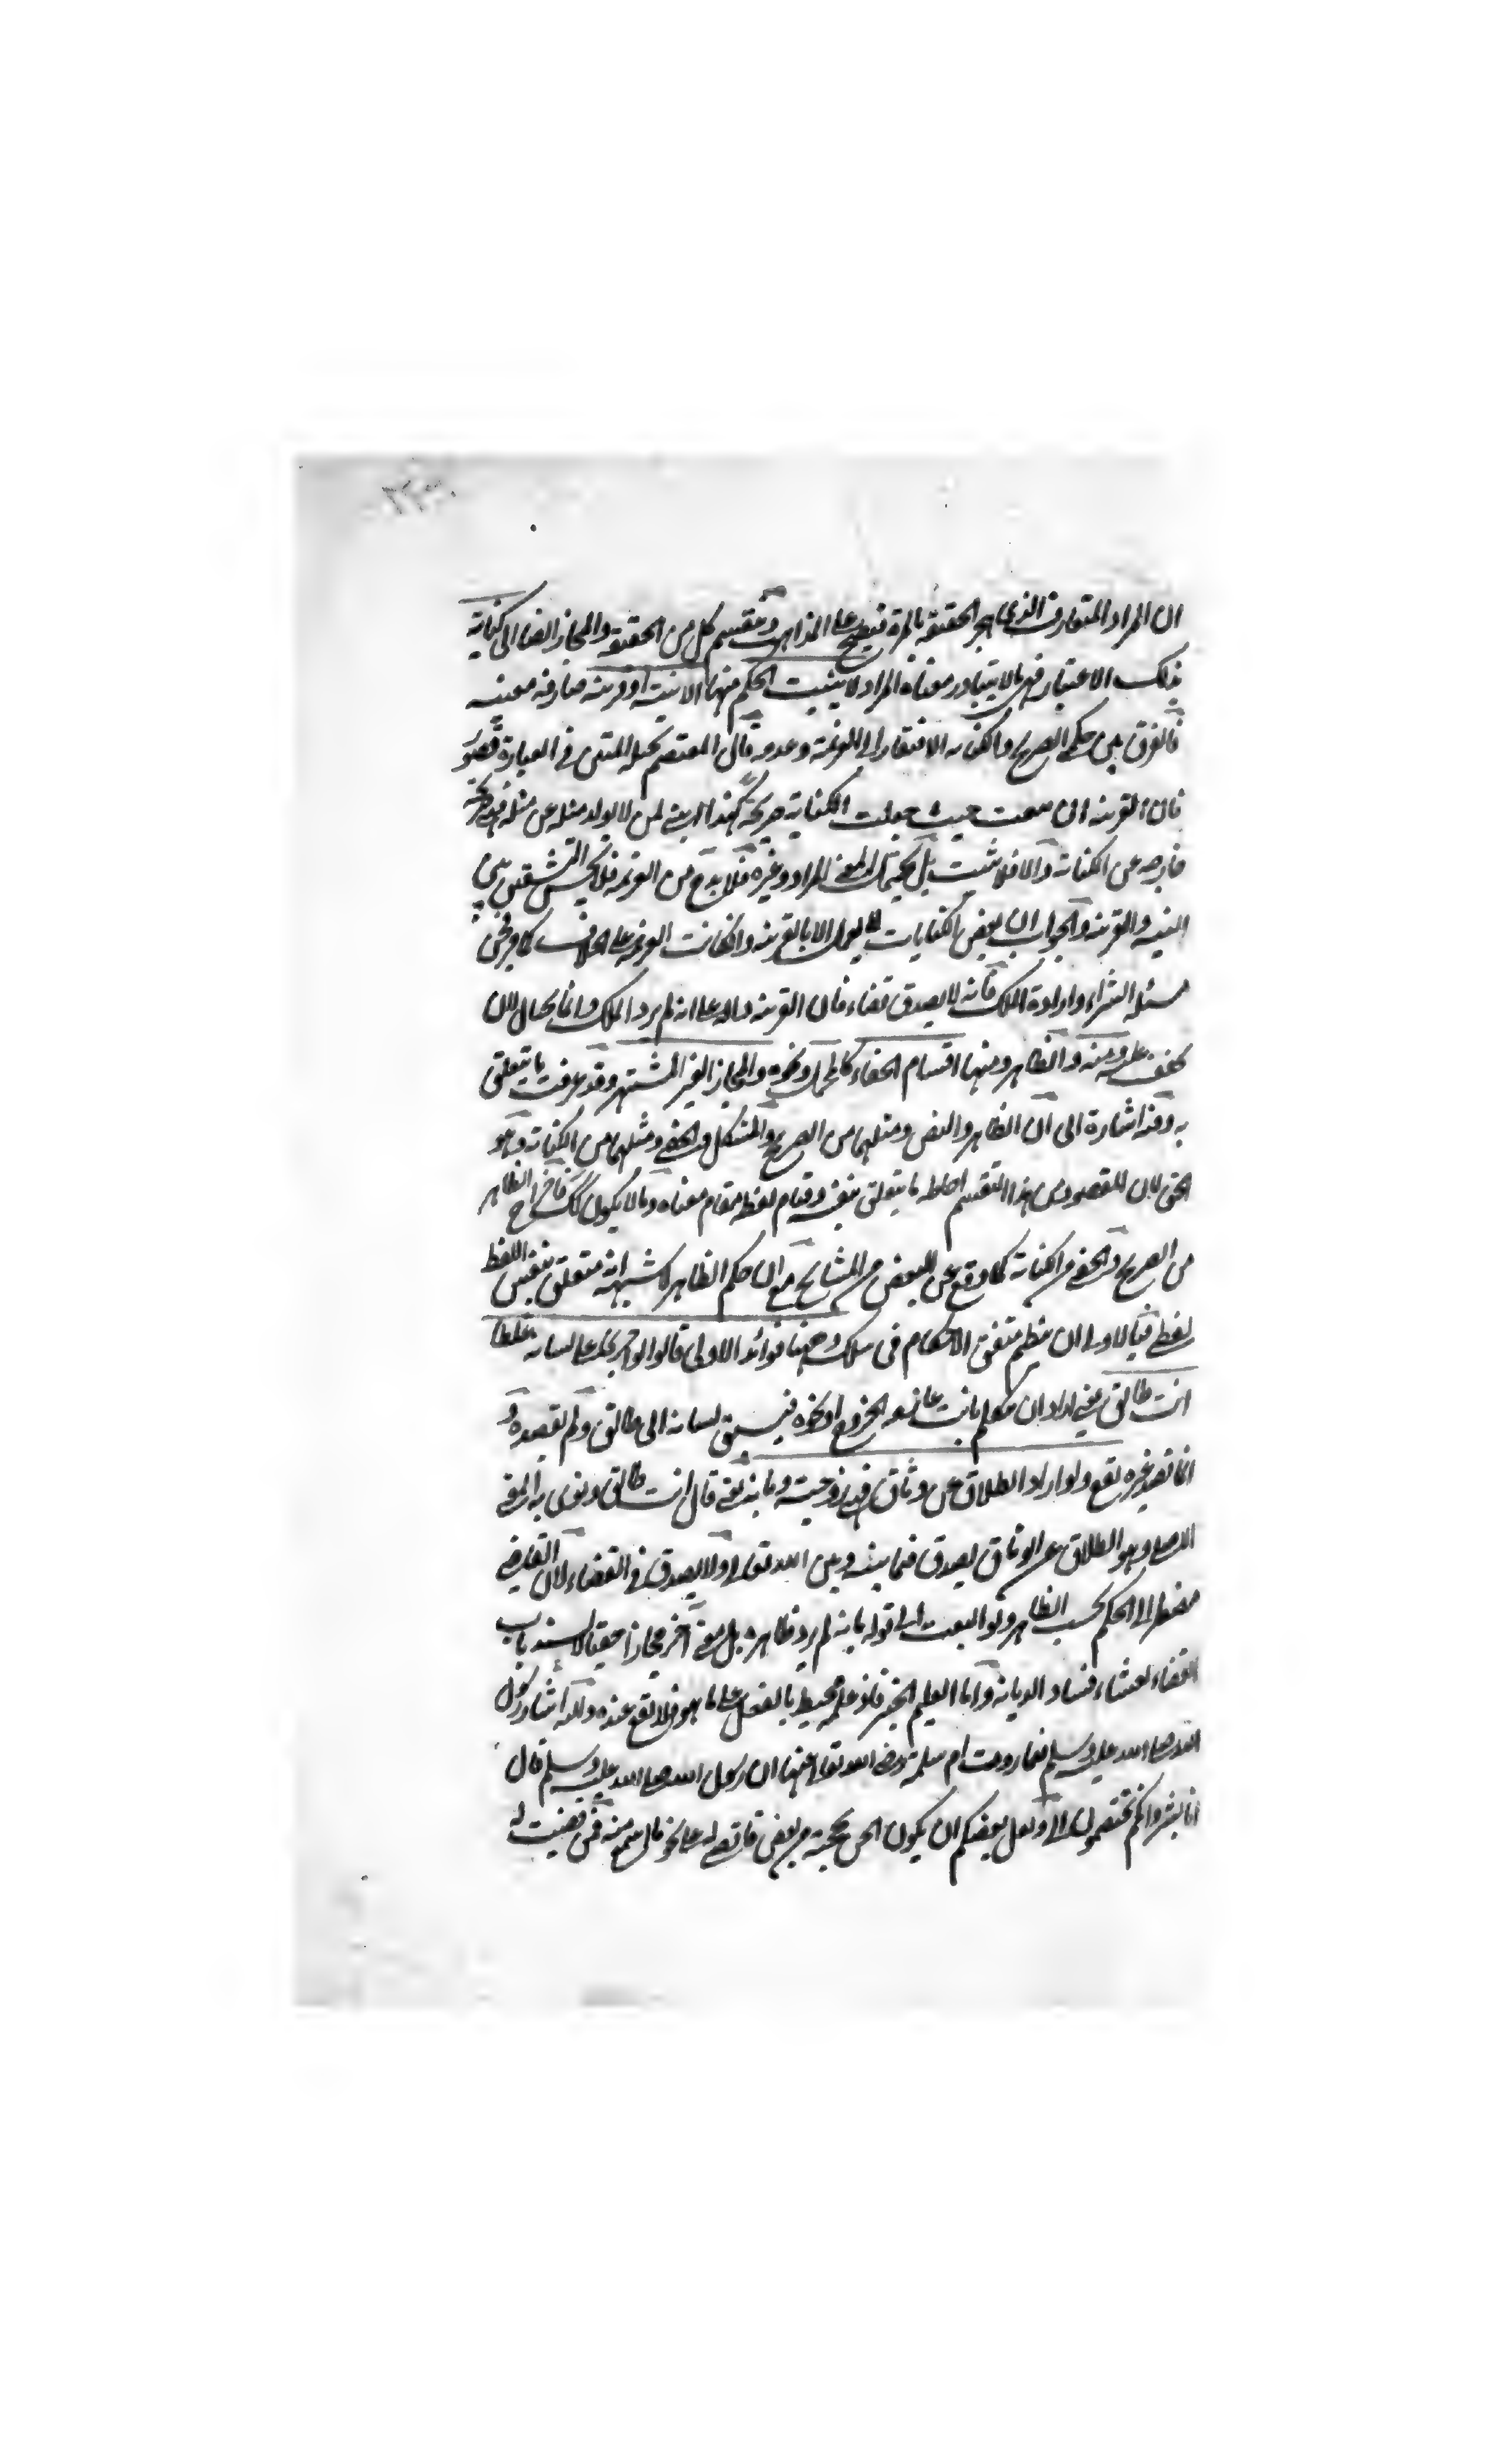 ان المراد المتعارف الذي هجر الحقيقة بالمرة فيصح على المذاهب وتنقسم كل من الحقيقة والمجاز ايضا الى كناية
بذلك الاعتبار فهي ما لا يتبادر معناه المراد لا يثبت الحكم منها الا بنية او قرينة صارفة معينة
فالفرق بين حكمي الصريح والكناية الافتقار الى القرينة وعدمه قال المعتصم بحبله المتين في العبارة قصور
فان القرينة ان حيث جعلت الكناية صريحة كهذا ابني لمن لا يولد مثله عن مثله فهي
خارجه عن الكناية والا فلا تثبت بل يحتمل المعنى المراد وغيره فلا بد من القرينة فلا يحسن التشقيق بين
النية والقرينة والجواب ان بعض الكنايات لا يعمل الا بالقرينة وان كانت القرينة على الخلاف كما في نحو
مسئلة الشراء وارادة الملك فانه لا يصدق قضاء فان القرينة دالة على انه لم يرد الملك وانما
عليه ومنه والظاهر ومنها اقسام الخفاء كالمجمل ونحوه والمجاز الغير المشتهر وقد عرفت ما يتعلق
به وفيه اشارة الى ان الظاهر والنص ومثلهما من الصريح والمشكل والخفي ومثلهما من الكناية وهو
الحق لان المقصود من هذا التقسيم احاطة ما يتعلق بنفسه وقيام لفظه مقام معناه وما لا يكون كذلك فاخراج الظاهر
من الصريح والخفي من الكناية كما وقع عن البعض من المشايخ مع ان حكم الظاهر لا شبهة انه متعلق بنفس اللفظ
لفظي فبالاولى ان ينظم متفق الاحكام في سلك وههنا فوائد الاولى قالوا لو جرى على لسانه غلطا
انت طالق يعني اراد ان يتكلم بانت الخروج او نحوه فيسبق لسانه الى طالق ولم يقصده و
انما قصد غيره يقع ولو اراد الطلاق عن وثاق فهي زوجته وما يعني قال انت طالق ونوى به المعنى
الاصلي وهو الطلاق عن الوثاق يصدق فيما بينه وبين الله تعالى ولا يصدق في القضاء لان القاضي
مضطر الى الحكم بحسب الظاهر ولو التفت الى قوله بانه لم يرد ظاهره بل معنى آخر مجازا حقيقا لانسد باب
القضاء لفشاء فساد الديانة واما العليم الخبير فاذ علمه محيط بالفعل على ما هو فلا تقع عنده ولله اشار رسول
الله صلى الله عليه وسلم فيما روت ام سلمة رضي الله تعالى عنها ان رسول الله صلى الله عليه وسلم قال
انا بشر وانكم تختصمون الي ولعل بعضكم ان يكون الحن بحجته من بعض فاقضي له على نحو ما اسمع منه فمن قضيت له